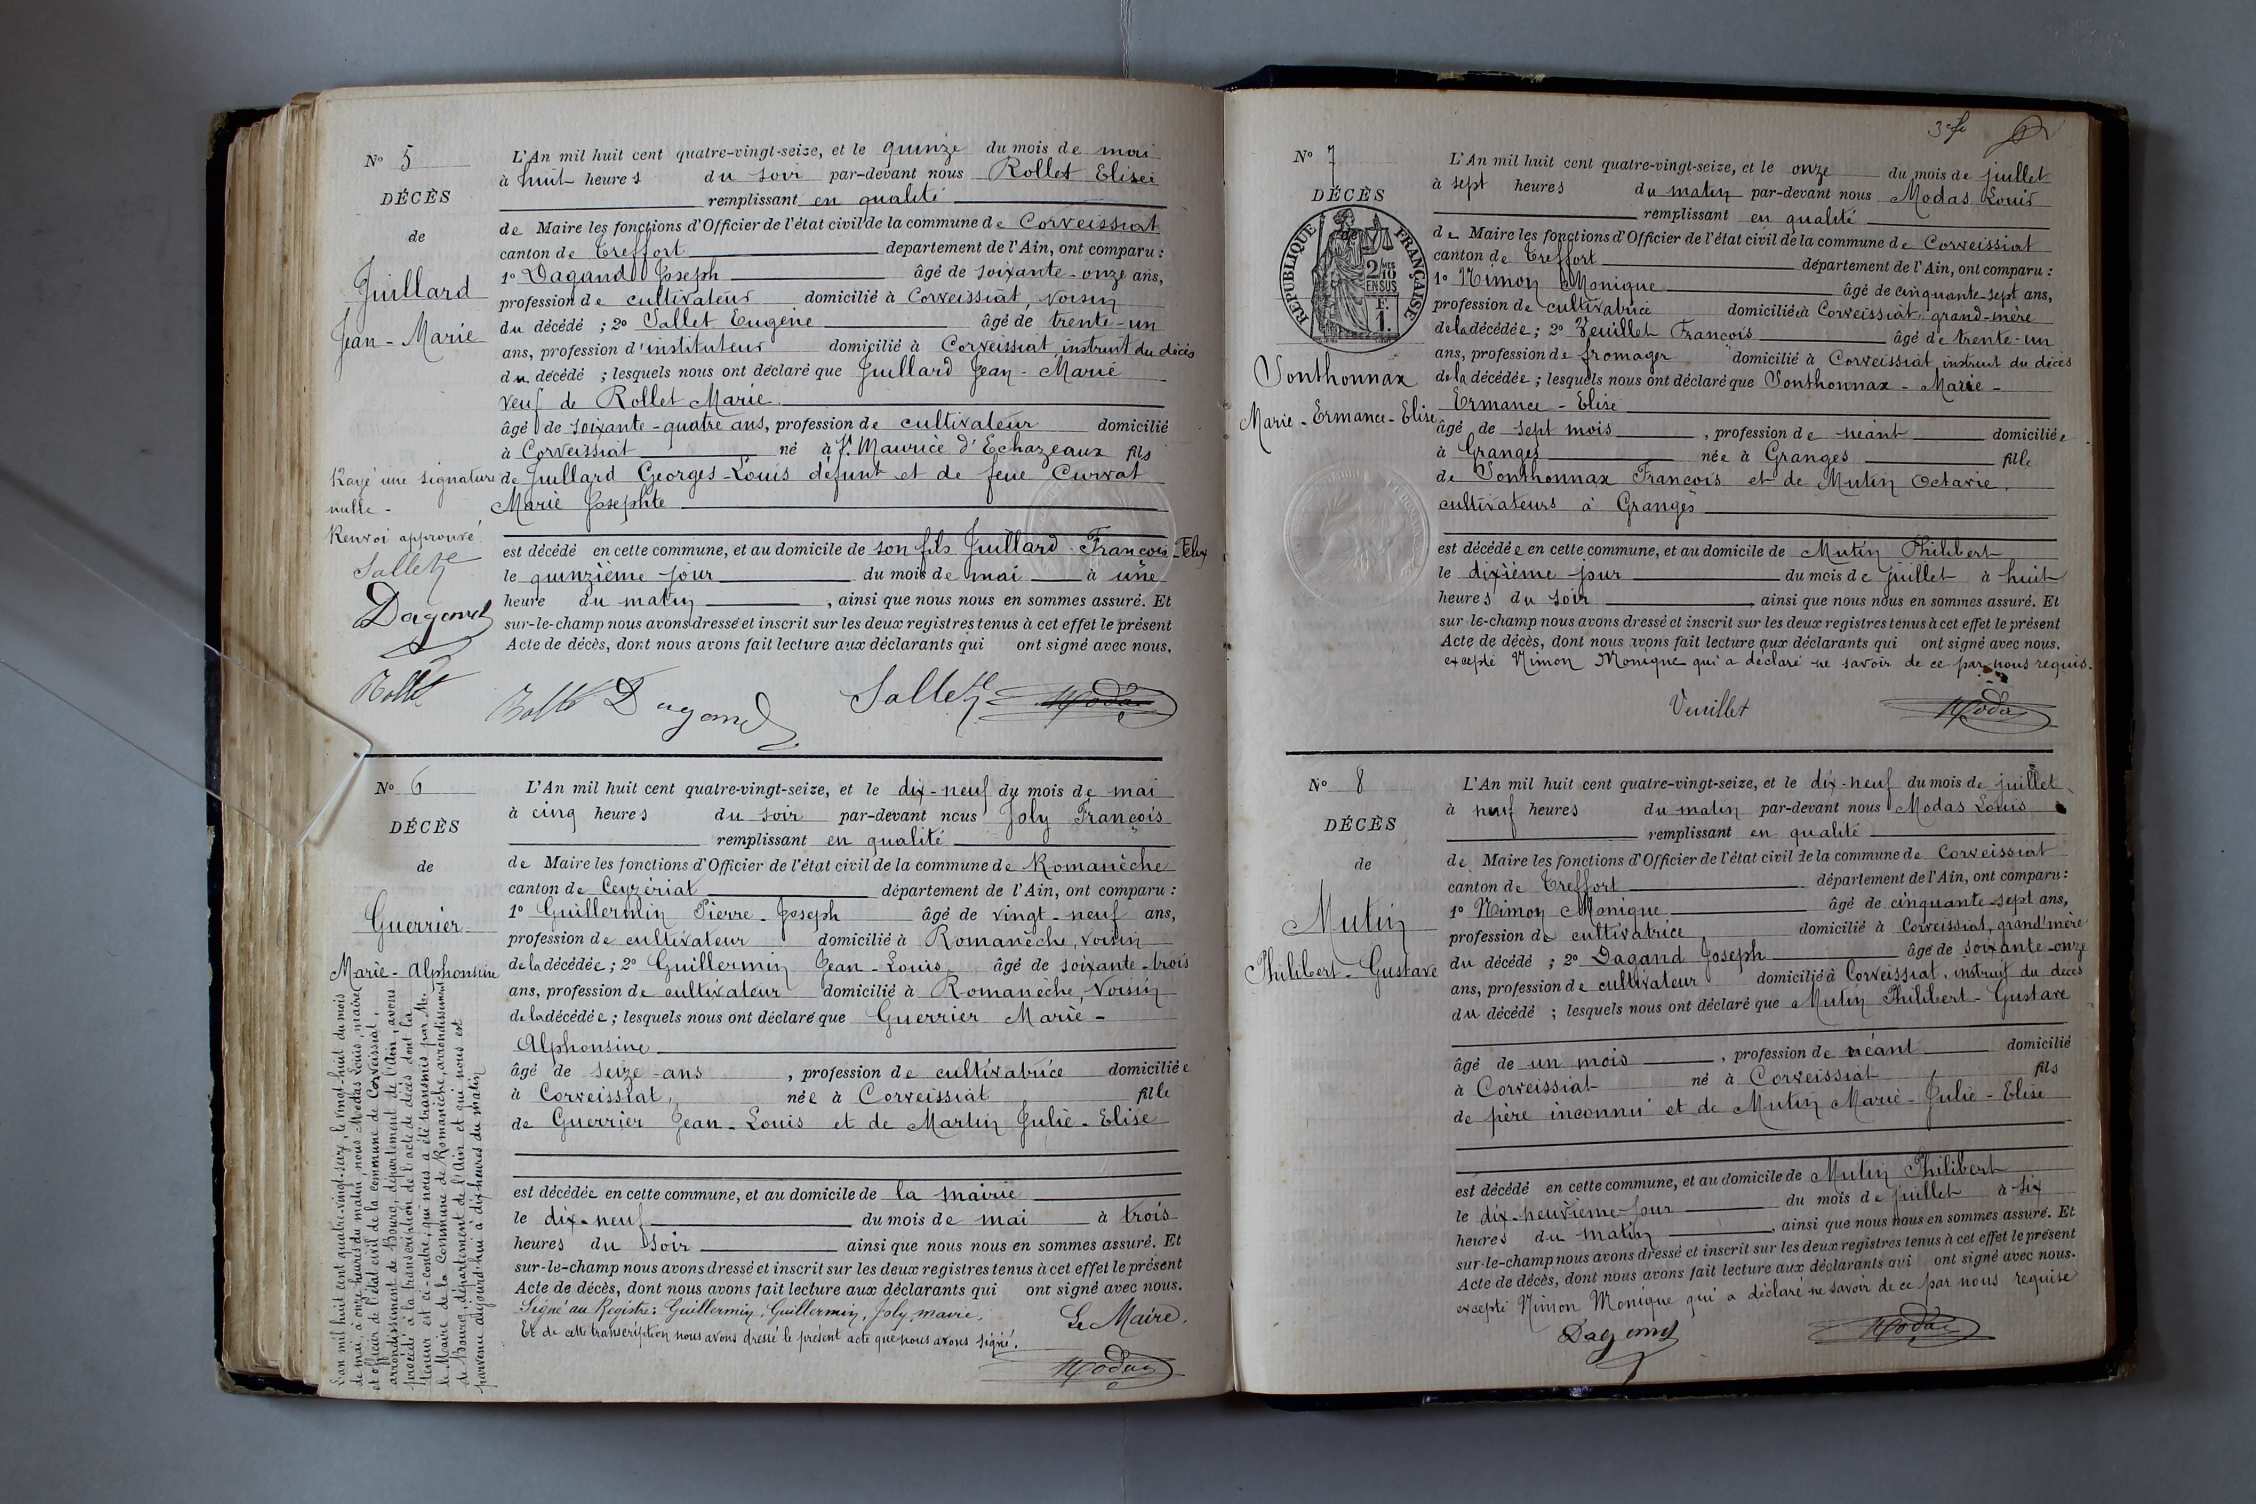 N° 5
DÉCÈS
de
Juillard
Jean-Marie
L'An mil huit cent quatre-vingt-seize, et le quinze du mois de mai
à huit heures du soir par-devant nous Rollet Elisée
remplissant en qualité
de Maire les fonctions d'Officier de l'état civil de la commune de Corveissiat
canton de Treffort département de l'Ain, ont comparu :
1° Dagand Joseph âgé de soixante-onze ans,
profession de cultivateur domicilié à Corveissiat, voisin
du décédé ; 2° Sallet Eugène âgé de trente-un
ans, profession d'instituteur domicilié à Corveissiat instruit du décès
du décédé ; lesquels nous ont déclaré que Juillard Jean-Marie
veuf de Rollet Marie
âgé de soixante-quatre ans, profession de cultivateur domicilié
à Corveissiat né à St Maurice d'Echazeaux fils
de Juillard Georges-Louis défunt et de feue Curvat
Marie Josephte
est décédé en cette commune, et au domicile de son fils Juillard François-Félix
le quinzième jour du mois de mai à une
heure du matin , ainsi que nous nous en sommes assuré. Et
sur-le-champ nous avons dressé et inscrit sur les deux registres tenus à cet effet le présent
Acte de décès, dont nous avons fait lecture aux déclarants qui ont signé avec nous.
Rayé une signature
nulle -
Renvoi approuvé
Sallet
Dagand
Rollet
Rollet Dagand Sallet Modas
N° 6
DÉCÈS
de
Guerrier
Marie-Alphonsine
L'An mil huit cent quatre-vingt-seize, et le dix-neuf du mois de mai
à cinq heures du soir par-devant nous Joly François
remplissant en qualité
de Maire les fonctions d'Officier de l'état civil de la commune de Romanèche
canton de Ceyzériat département de l'Ain, ont comparu :
1° Guillermin Pierre-Joseph âgé de vingt-neuf ans,
profession de cultivateur domicilié à Romanèche, voisin
de la décédée ; 2° Guillermin Jean-Louis âgé de soixante-trois
ans, profession de cultivateur domicilié à Romanèche, voisin
de la décédée ; lesquels nous ont déclaré que Guerrier Marie-
Alphonsine
âgé de seize ans , profession de cultivatrice domiciliée
à Corveissiat, née à Corveissiat fille
de Guerrier Jean-Louis et de Martin Julie-Elise
est décédée en cette commune, et au domicile de la mairie
le dix-neuf du mois de mai à trois
heures du soir ainsi que nous nous en sommes assuré. Et
sur-le-champ nous avons dressé et inscrit sur les deux registres tenus à cet effet le présent
Acte de décès, dont nous avons fait lecture aux déclarants qui ont signé avec nous.
Signé au Registre : Guillermin, Guillermin, Joly, maire.
Et de cette transcription nous avons dressé le présent acte que nous avons signé.
Le Maire,
Modas
L'an mil huit cent quatre-vingt-seize, le vingt-huit du mois
de mai, à onze heures du matin, nous Modas Louis, maire
et officier de l'état civil de la commune de Corveissiat,
arrondissement de Bourg, département de l'Ain, avons
procédé à la transcription de l'acte de décès dont la
teneur est ci-contre, qui nous a été transmis par Mr.
le Maire de la Commune de Romanèche, arrondissement
de Bourg, département de l'Ain et qui nous est
parvenue aujourd'hui à dix heures du matin
3e f
N° 7
DÉCÈS
de
RÉPUBLIQUE FRANÇAISE
2/10
EN SUS
F.
1.
Sonthonnax
Marie-Ermance-Elise
L'An mil huit cent quatre-vingt-seize, et le onze du mois de juillet
à sept heures du matin par-devant nous Modas Louis
remplissant en qualité
de Maire les fonctions d'Officier de l'état civil de la commune de Corveissiat
canton de Treffort département de l'Ain, ont comparu :
1° Nimon Monique âgé de cinquante-sept ans,
profession de cultivatrice domiciliée à Corveissiat, grand-mère
de la décédée ; 2° Veuillet François âgé de trente-un
ans, profession de fromager domicilié à Corveissiat, instruit du décès
de la décédée ; lesquels nous ont déclaré que Sonthonnax-Marie-
Ermance-Elise
âgé de sept mois , profession de néant domiciliée
à Granges née à Granges fille
de Sonthonnax François et de Mutin Octavie,
cultivateurs à Granges
est décédée en cette commune, et au domicile de Mutin Philibert
le dixième jour du mois de juillet à huit
heures du soir , ainsi que nous nous en sommes assuré. Et
sur-le-champ nous avons dressé et inscrit sur les deux registres tenus à cet effet le présent
Acte de décès, dont nous avons fait lecture aux déclarants qui ont signé avec nous.
excepté Nimon Monique qui a déclaré ne savoir de ce par nous requis.
Veuillet Modas
N° 8
DÉCÈS
de
Mutin
Philibert-Gustave
L'An mil huit cent quatre-vingt-seize, et le dix-neuf du mois de juillet
à neuf heures du matin par-devant nous Modas Louis
remplissant en qualité
de Maire les fonctions d'Officier de l'état civil de la commune de Corveissiat
canton de Treffort département de l'Ain, ont comparu :
1° Nimon Monique âgé de cinquante-sept ans,
profession de cultivatrice domicilié à Corveissiat, grand'mère
du décédé ; 2° Dagand Joseph âgé de soixante-onze
ans, profession de cultivateur domicilié à Corveissiat, instruit du décès
du décédé ; lesquels nous ont déclaré que Mutin Philibert-Gustave
âgé de un mois , profession de néant domicilié
à Corveissiat né à Corveissiat fils
de père inconnu et de Mutin Marie-Julie-Elise
est décédé en cette commune, et au domicile de Mutin Philibert
le dix-neuvième jour du mois de juillet à six
heures du matin , ainsi que nous nous en sommes assuré. Et
sur-le-champ nous avons dressé et inscrit sur les deux registres tenus à cet effet le présent
Acte de décès, dont nous avons fait lecture aux déclarants qui ont signé avec nous.
excepté Nimon Monique qui a déclaré ne savoir de ce par nous requise
Dagand Modas